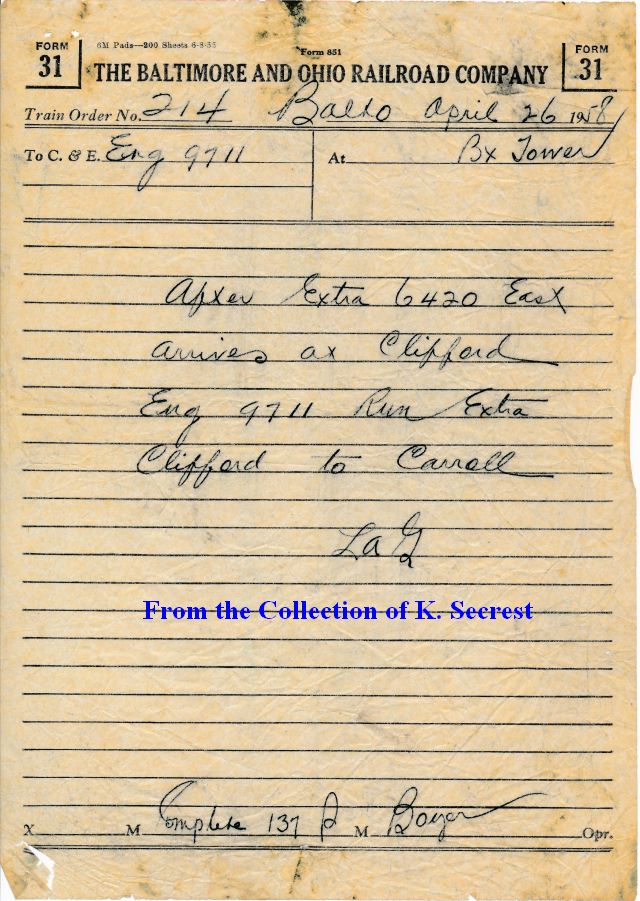 FORM 31
6M Pads—200 Sheets 6-8-55
Form 851
FORM 31
THE BALTIMORE AND OHIO RAILROAD COMPANY
Train Order No. 214 Balto April 26 1958
To C. & E. Eng 9711 At Bx Tower
After Extra 6420 East
arrives at Clifford
Eng 9711 Run Extra
Clifford to Carroll
La G
From the Collection of K. Secrest
X M Complete 137 P M Boyer Opr.